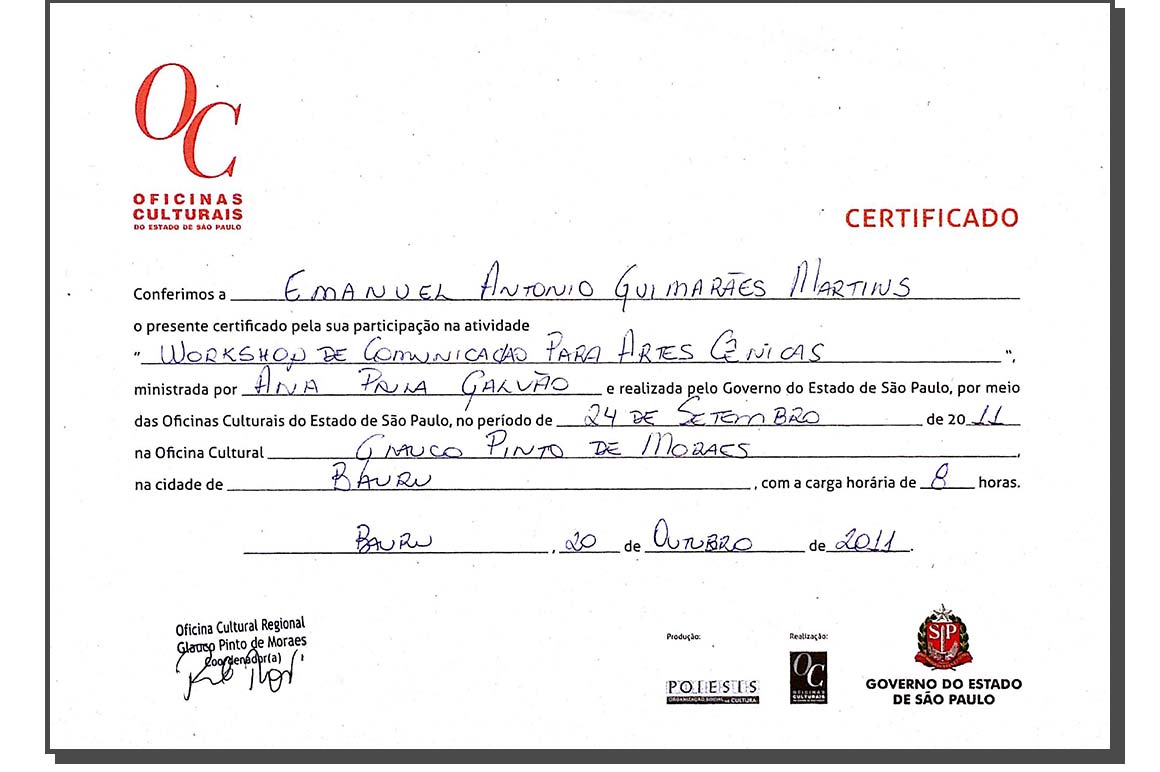 OC
OFICINAS
CULTURAIS
DO ESTADO DE SÃO PAULO
CERTIFICADO
Conferimos a EMANUEL ANTONIO GUIMARÃES MARTINS
o presente certificado pela sua participação na atividade
" WORKSHOP DE COMUNICAÇÃO PARA ARTES CÊNICAS ",
ministrada por ANA PAULA GALVÃO e realizada pelo Governo do Estado de São Paulo, por meio
das Oficinas Culturais do Estado de São Paulo, no período de 24 DE SETEMBRO de 2011
na Oficina Cultural GLAUCO PINTO DE MORAES,
na cidade de BAURU, com a carga horária de 8 horas.
BAURU, 20 de OUTUBRO de 2011.
Oficina Cultural Regional
Glauco Pinto de Moraes
Coordenador(a)
Produção:
POIESIS
ORGANIZAÇÃO SOCIAL DE CULTURA
Realização:
OC
OFICINAS
CULTURAIS
SP
GOVERNO DO ESTADO
DE SÃO PAULO